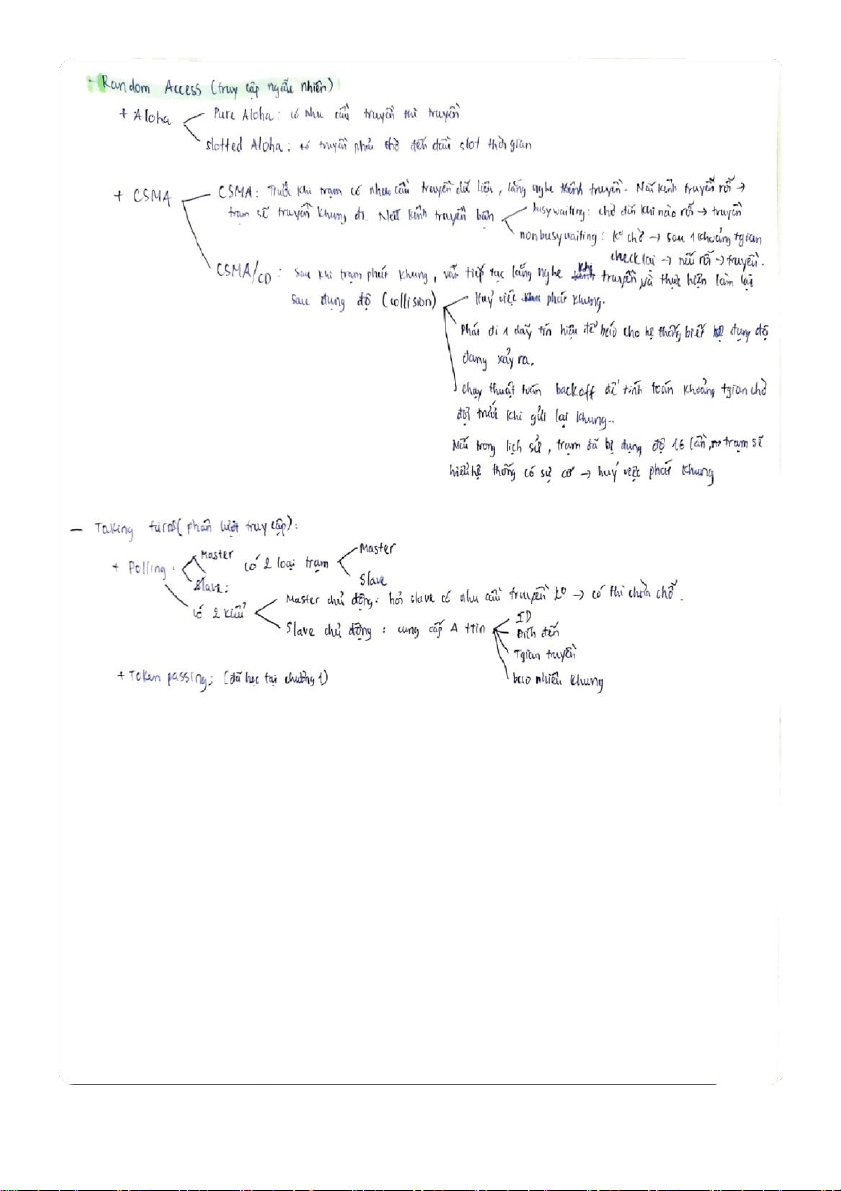 - Random Access (truy cập ngẫu nhiên)
+ Aloha
Pure Aloha: có nhu cầu truyền thì truyền
slotted Aloha: truyền phải chờ đến đầu slot thời gian
+ CSMA
CSMA: Trước khi trạm có nhu cầu truyền dữ liệu, lắng nghe kênh truyền. Nếu kênh truyền rỗi →
trạm sẽ truyền khung đi. Nếu kênh truyền bận
busy waiting: chờ đến khi nào rỗi → truyền
non busy waiting: k° chờ → sau 1 khoảng tgian
check lại → nếu rỗi → truyền.
CSMA/CD: sau khi trạm phát khung, vẫn tiếp tục lắng nghe khi truyền và thực hiện làm lại
sau đụng độ (collision)
Huỷ việc phát khung.
Phát đi 1 dãy tín hiệu để báo cho hệ thống biết đụng độ
đang xảy ra.
chạy thuật toán backoff để tính toán khoảng tgian chờ
đợi trước khi gửi lại khung..
Nếu trong lịch sử, trạm đã bị đụng độ 16 lần, → trạm sẽ
hiểu hệ thống có sự cố → huỷ việc phát khung
- Taking turns (phân lượt truy cập):
+ Polling:
Master
Slave:
có 2 loại trạm
Master
Slave
có 2 kiểu
Master chủ động: hỏi slave có nhu cầu truyền k° → có thì chừa chỗ.
Slave chủ động: cung cấp 4 ttin
ID
Đích đến
Tgian truyền
bao nhiêu khung
+ Token passing: (đã học tại chương 1)